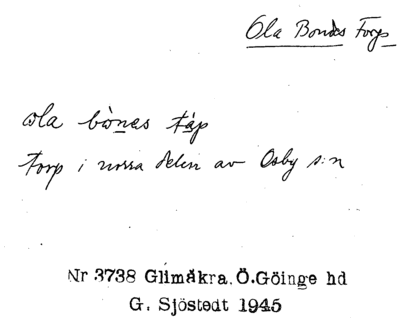 Ola Bondes Torp
ola bònas táp
torp i norra delen av Osby s:n
Nr 3738 Glimåkra. Ö.Göinge hd
G. Sjöstedt 1945